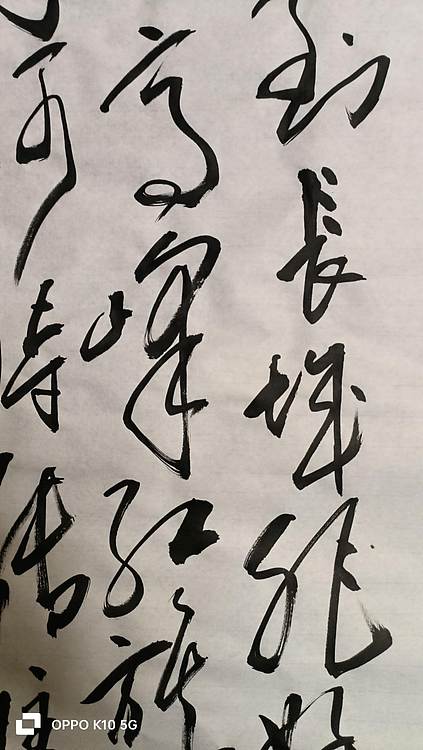 到長城非好
高峰红旗
何時缚住
OPPO K10 5G